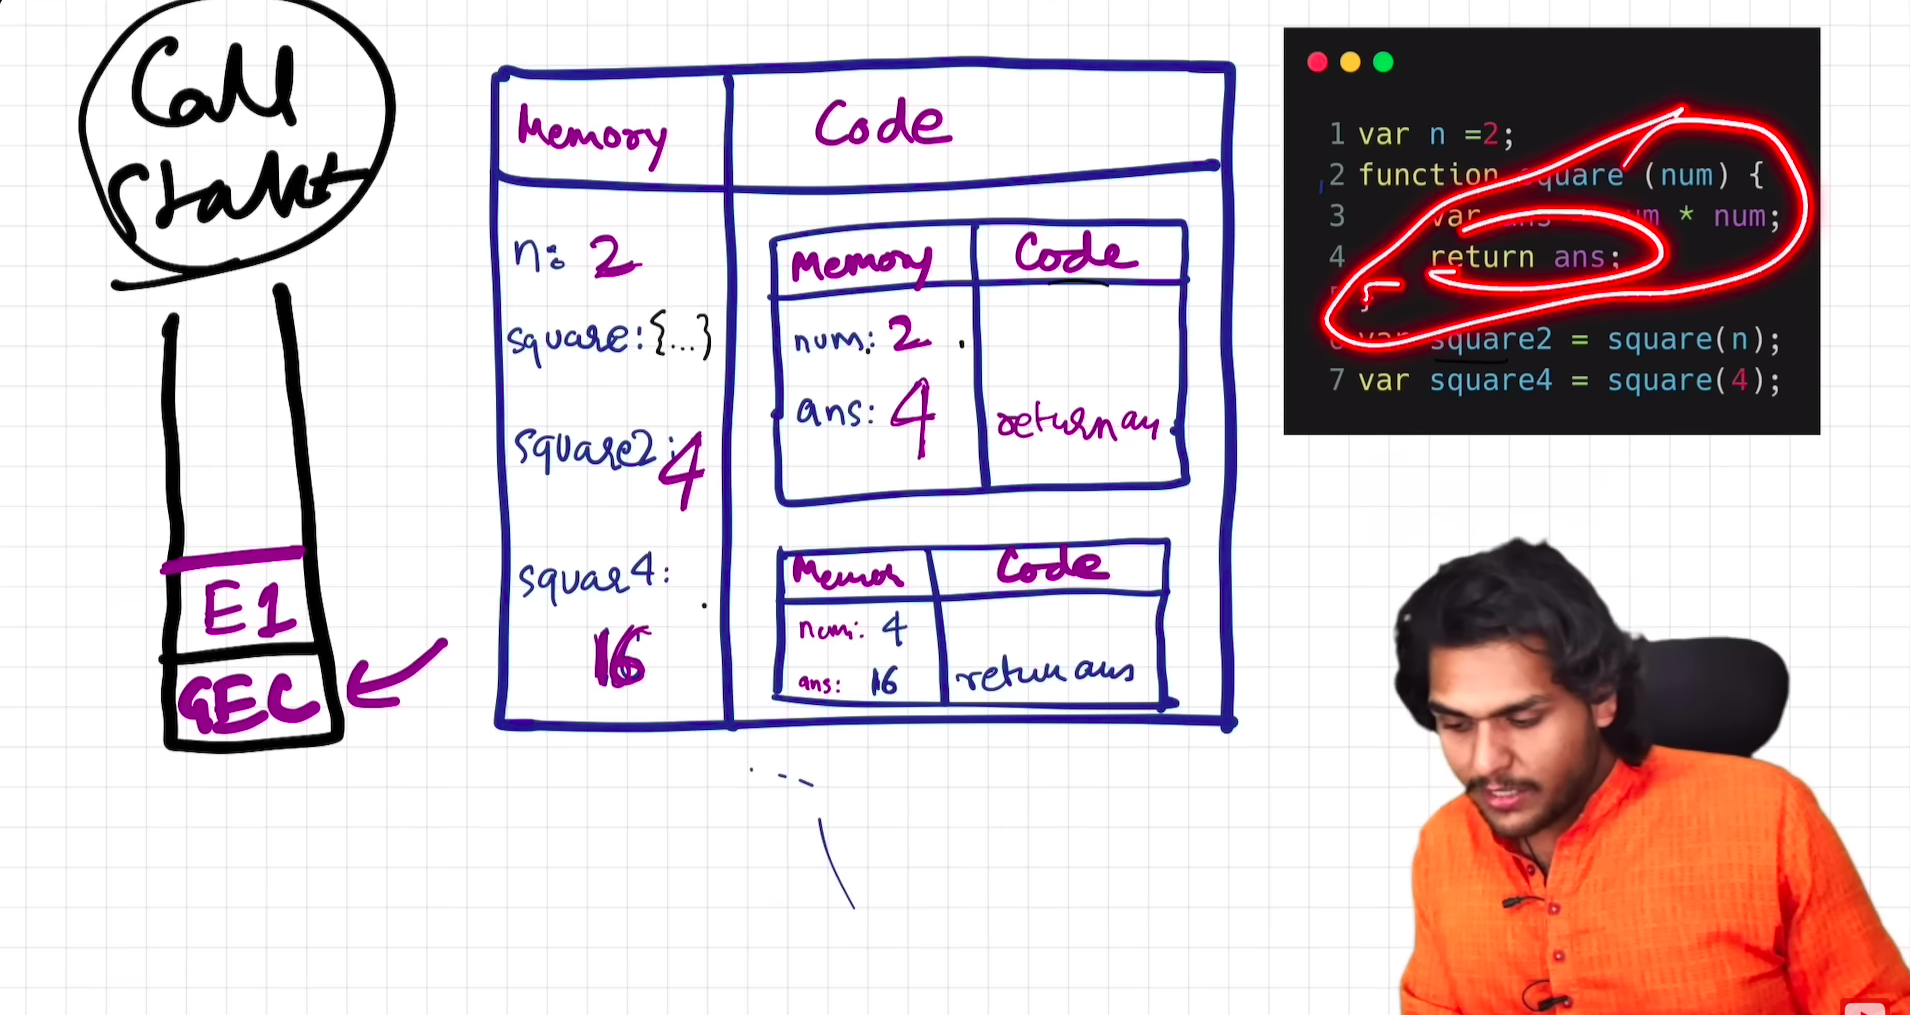 Call
Stakt
Memory
Code
n: 2
square: {...}
square2: 4
squar4:
16
Memory
Code
num: 2
ans: 4
return an
Code
num: 4
ans: 16
return ans
E1
GEC
1 var n =2;
2 function square (num) {
3 var ans = num * num;
4 return ans;
}
6 var square2 = square(n);
7 var square4 = square(4);